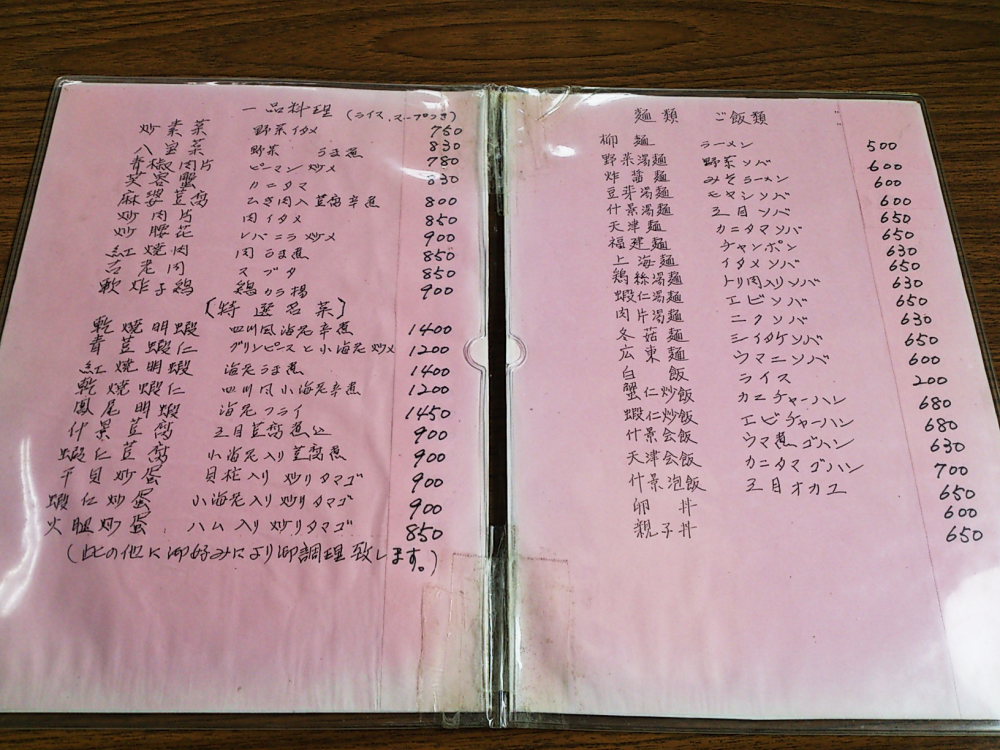 一品料理 (ライス、スープつき)
炒素菜 野菜イタメ 750
八宝菜 野菜うま煮 830
青椒肉片 ピーマン炒メ 780
芙容蟹 カニタマ 830
麻婆豆腐 ひき肉入豆腐辛煮 800
炒肉片 肉イタメ 850
炒腰花 レバニラ炒メ 900
紅焼肉 肉うま煮 850
古老肉 スブタ 850
軟炸子鶏 鶏カラ揚 900
〔特選名菜〕
乾焼明蝦 四川風海老辛煮 1400
青荳蝦仁 グリンピースと小海老炒メ 1200
紅焼明蝦 海老うま煮 1400
乾焼蝦仁 四川風小海老辛煮 1200
鳳尾明蝦 海老フライ 1450
什景豆腐 五目豆腐煮込 900
蝦仁豆腐 小海老入り豆腐煮 900
干貝炒蛋 貝柱入り炒りタマゴ 900
蝦仁炒蛋 小海老入り炒りタマゴ 900
火腿炒蛋 ハム入り炒りタマゴ 850
(此の他に御好みにより御調理致します。)
麺類 ご飯類
柳麺 ラーメン 500
野菜湯麺 野菜ソバ 600
炸醤麺 みそラーメン 600
豆芽湯麺 モヤシソバ 600
什景湯麺 五目ソバ 650
天津麺 カニタマソバ 650
福建麺 チャンポン 630
上海麺 イタメソバ 650
鶏絲湯麺 トリ肉入りソバ 630
蝦仁湯麺 エビソバ 650
肉片湯麺 ニクソバ 630
冬菇麺 シイタケソバ 650
広東麺 ウマニソバ 600
白飯 ライス 200
蟹仁炒飯 カニチャーハン 680
蝦仁炒飯 エビチャーハン 680
什景会飯 ウマ煮ゴハン 630
天津会飯 カニタマゴハン 700
什景泡飯 五目オカユ 650
卵丼 600
親子丼 650